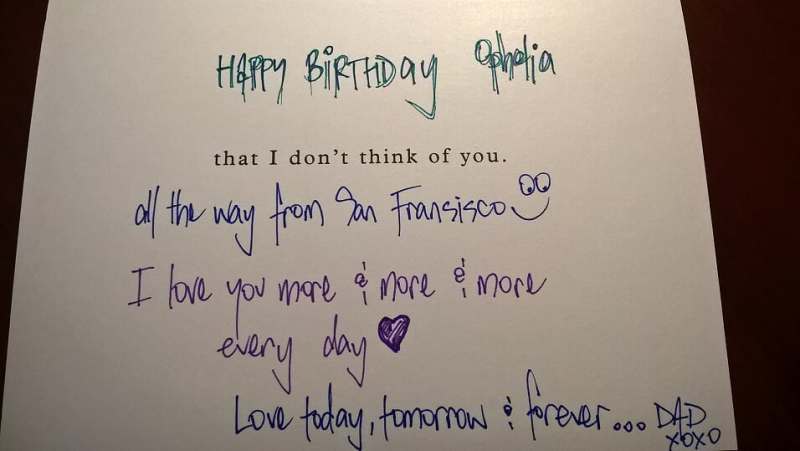 HAPPY BiRTHDay Ophelia
that I don't think of you.
all the way from San Fransisco
I love you more & more & more
every day
Love today, tomorrow & forever... DAD
xoxo